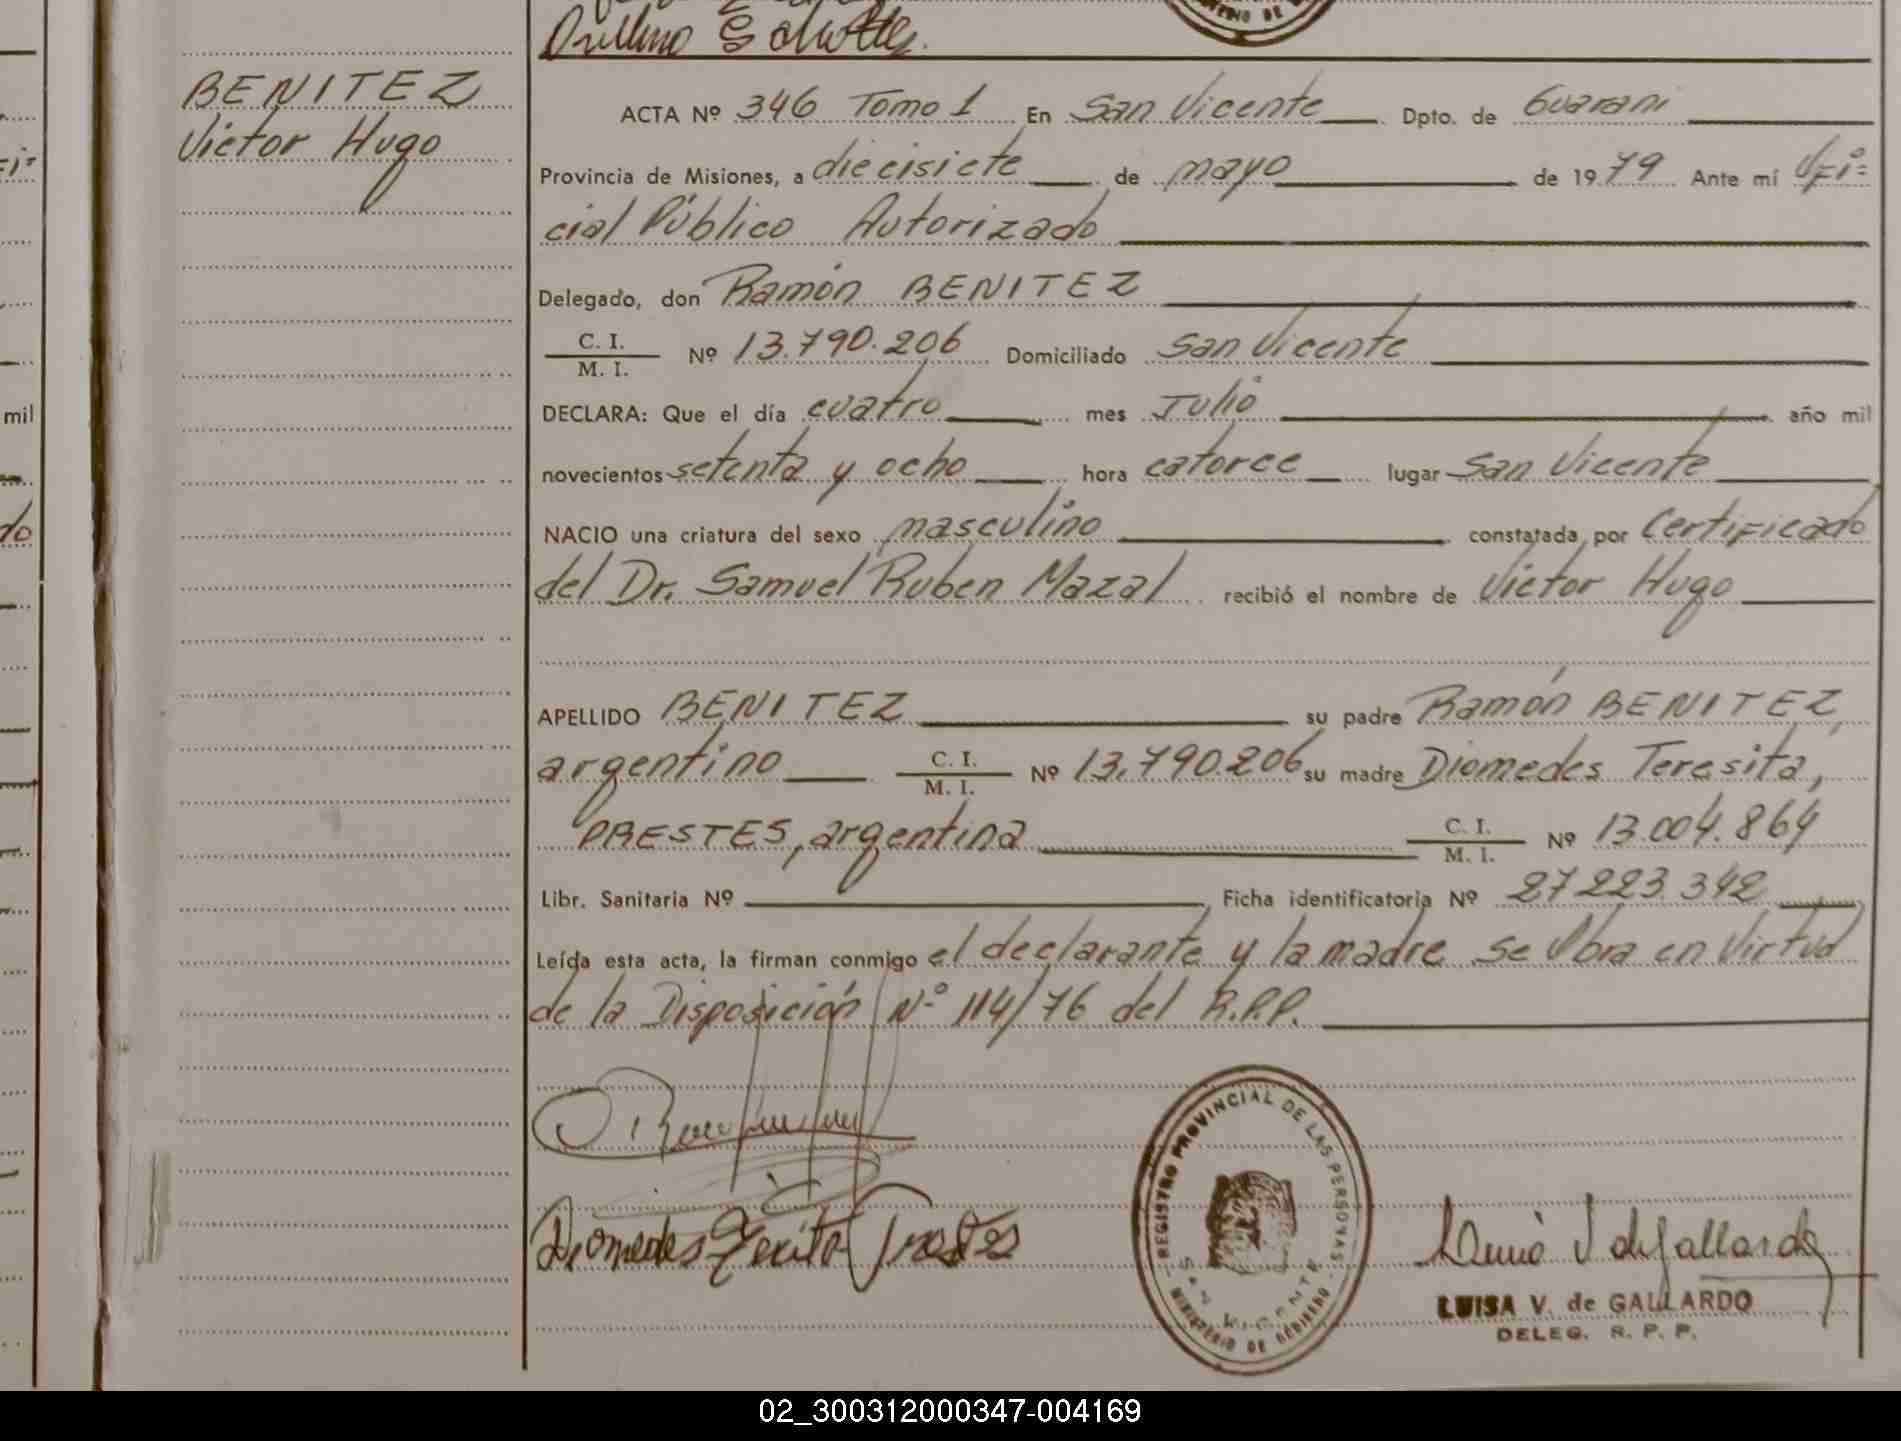 BENITEZ
Victor Hugo
ACTA Nº 346 Tomo 1 En San Vicente Dpto. de Guarani
Provincia de Misiones, a diecisiete de mayo de 1979 Ante mí Ofi=
cial Público Autorizado
Delegado, don Ramón BENITEZ
C. I.
M. I. Nº 13.790.206 Domiciliado San Vicente
DECLARA: Que el día cuatro mes Julio año mil
novecientos setenta y ocho hora catorce lugar San Vicente
NACIO una criatura del sexo masculino constatada por Certificado
del Dr. Samuel Ruben Mazal recibió el nombre de Victor Hugo
APELLIDO BENITEZ su padre Ramón BENITEZ,
argentino C. I. M. I. Nº 13.790.206 su madre Diomedes Teresita,
PRESTES, argentina C. I. M. I. Nº 13.004.864
Libr. Sanitaria Nº Ficha identificatoria Nº 27223.342
Leída esta acta, la firman conmigo el declarante y la madre se Obra en Virtud
de la Disposición Nº 114/76 del R.P.P.
REGISTRO PROVINCIAL DE LAS PERSONAS
SAN VICENTE
MINISTERIO DE GOBIERNO
LUISA V. de GALLARDO
DELEG. R. P. P.
mil
02_300312000347-004169